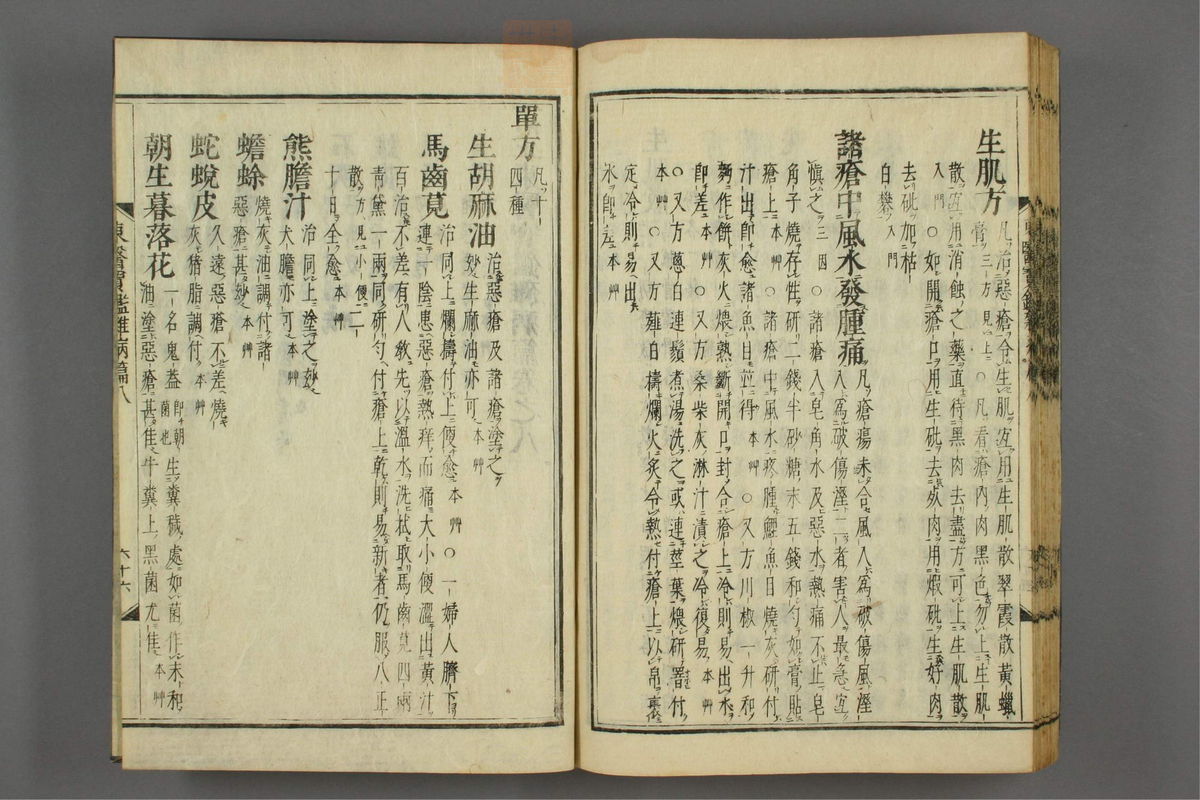 生肌方 凡治惡瘡令生肌宜用生肌散翠霞散黃蠟
膏三方見上○凡看瘡內肉黑色勿上生肌
散宜用消蝕之藥直待黑肉去盡方可上生肌散
入門○如開瘡口用生砒去死肉用煅砒生好肉
去砒加枯
白礬入門
諸瘡中風水發腫痛 凡瘡瘍未合風入爲破傷風溼
入爲破傷溼二者害人最急宜
愼之三因○諸瘡入皂角水及惡水熱痛不止皂
角子燒存性研二錢半砂糖末五錢和勻如膏貼
瘡上本艸○諸瘡中風水疼腫鯉魚目燒灰研付
汁出卽愈諸魚目並得本艸○又方川椒一升和
麪作餠灰火煨熟斷開口封合瘡上冷則易出水
卽差本艸○又方桑柴灰淋汁漬之冷復易本艸
○又方蔥白連鬚煮湯洗之或連莖葉煨研署付
本艸○又方薤白擣爛火炙令熱付瘡上以帛裹
定冷則易出
水卽差本艸
單方 凡十
四種
生胡麻油 治惡瘡及諸瘡塗之
妙生麻油亦可本艸
馬齒莧 治同上爛擣付上便愈本艸○一婦人臍下
連二陰患惡瘡熱痒而痛大小便澀出黃汁
百治不差有人敎先以溫水洗拭取馬齒莧四兩
靑黛一兩同研勻付瘡上乾則易新者仍服八正
散方見小便二
十日全愈本艸
熊膽汁 治同上塗之妙
犬膽亦可本艸
蟾蜍 燒灰油調付諸
惡瘡甚妙本艸
蛇蛻皮 久遠惡瘡不差燒
灰猪脂調付本艸
朝生暮落花 一名鬼蓋卽朝生糞穢處如菌作末和
菌也
油塗惡瘡甚佳牛糞上黑菌尤佳本艸
東醫寶鑑雜病篇八
六十六